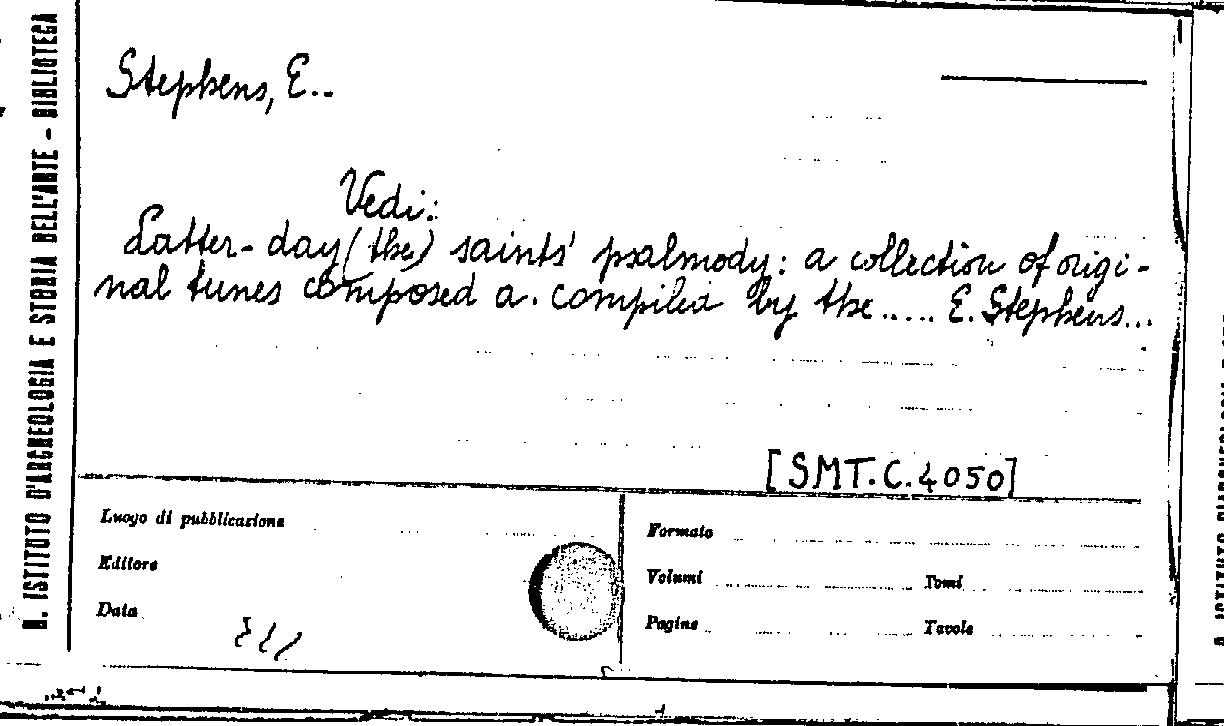 R. ISTITUTO D'ARCHEOLOGIA E STORIA DELL'ARTE - BIBLIOTECA
Stephens, E..
Vedi:
Latter-day (the) saints' psalmody: a collection of origi-
nal tunes composed a. compiled by the ..... E. Stephens...
[SMT.C.4050]
Luogo di pubblicazione
Editore
Data
Formato
Volumi Tomi
Pagine Tavole